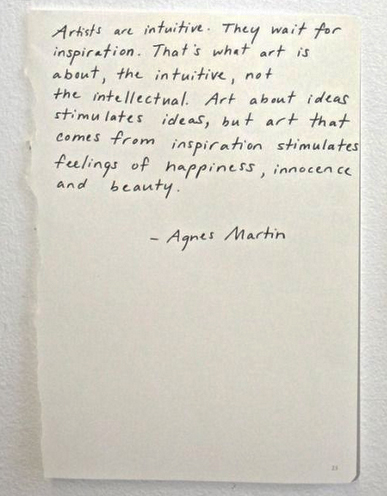 Artists are intuitive. They wait for
inspiration. That's what art is
about, the intuitive, not
the intellectual. Art about ideas
stimulates ideas, but art that
comes from inspiration stimulates
feelings of happiness, innocence
and beauty.
- Agnes Martin